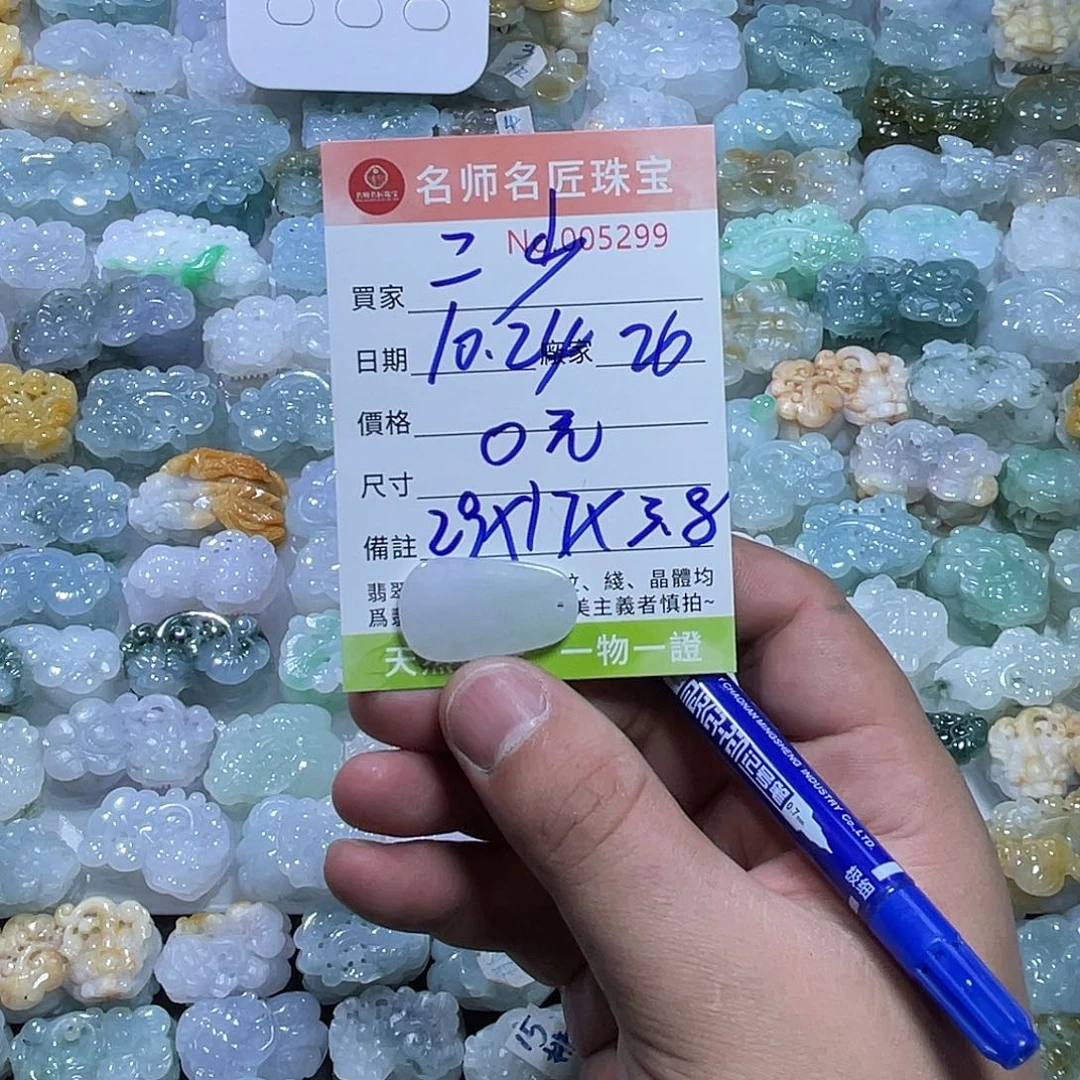 名师名匠珠宝
No.005299
買家 二少
日期 10.24 廠家 26
價格 0元
尺寸
備註 29X17X3.8
翡翠 紋、綫、晶體均
爲翡 美主義者慎拍~
天然 一物一證
Y CHAONAN MINGSHENG INDUSTRY Co.,LTD.
记号笔 0.7mm
极细
15